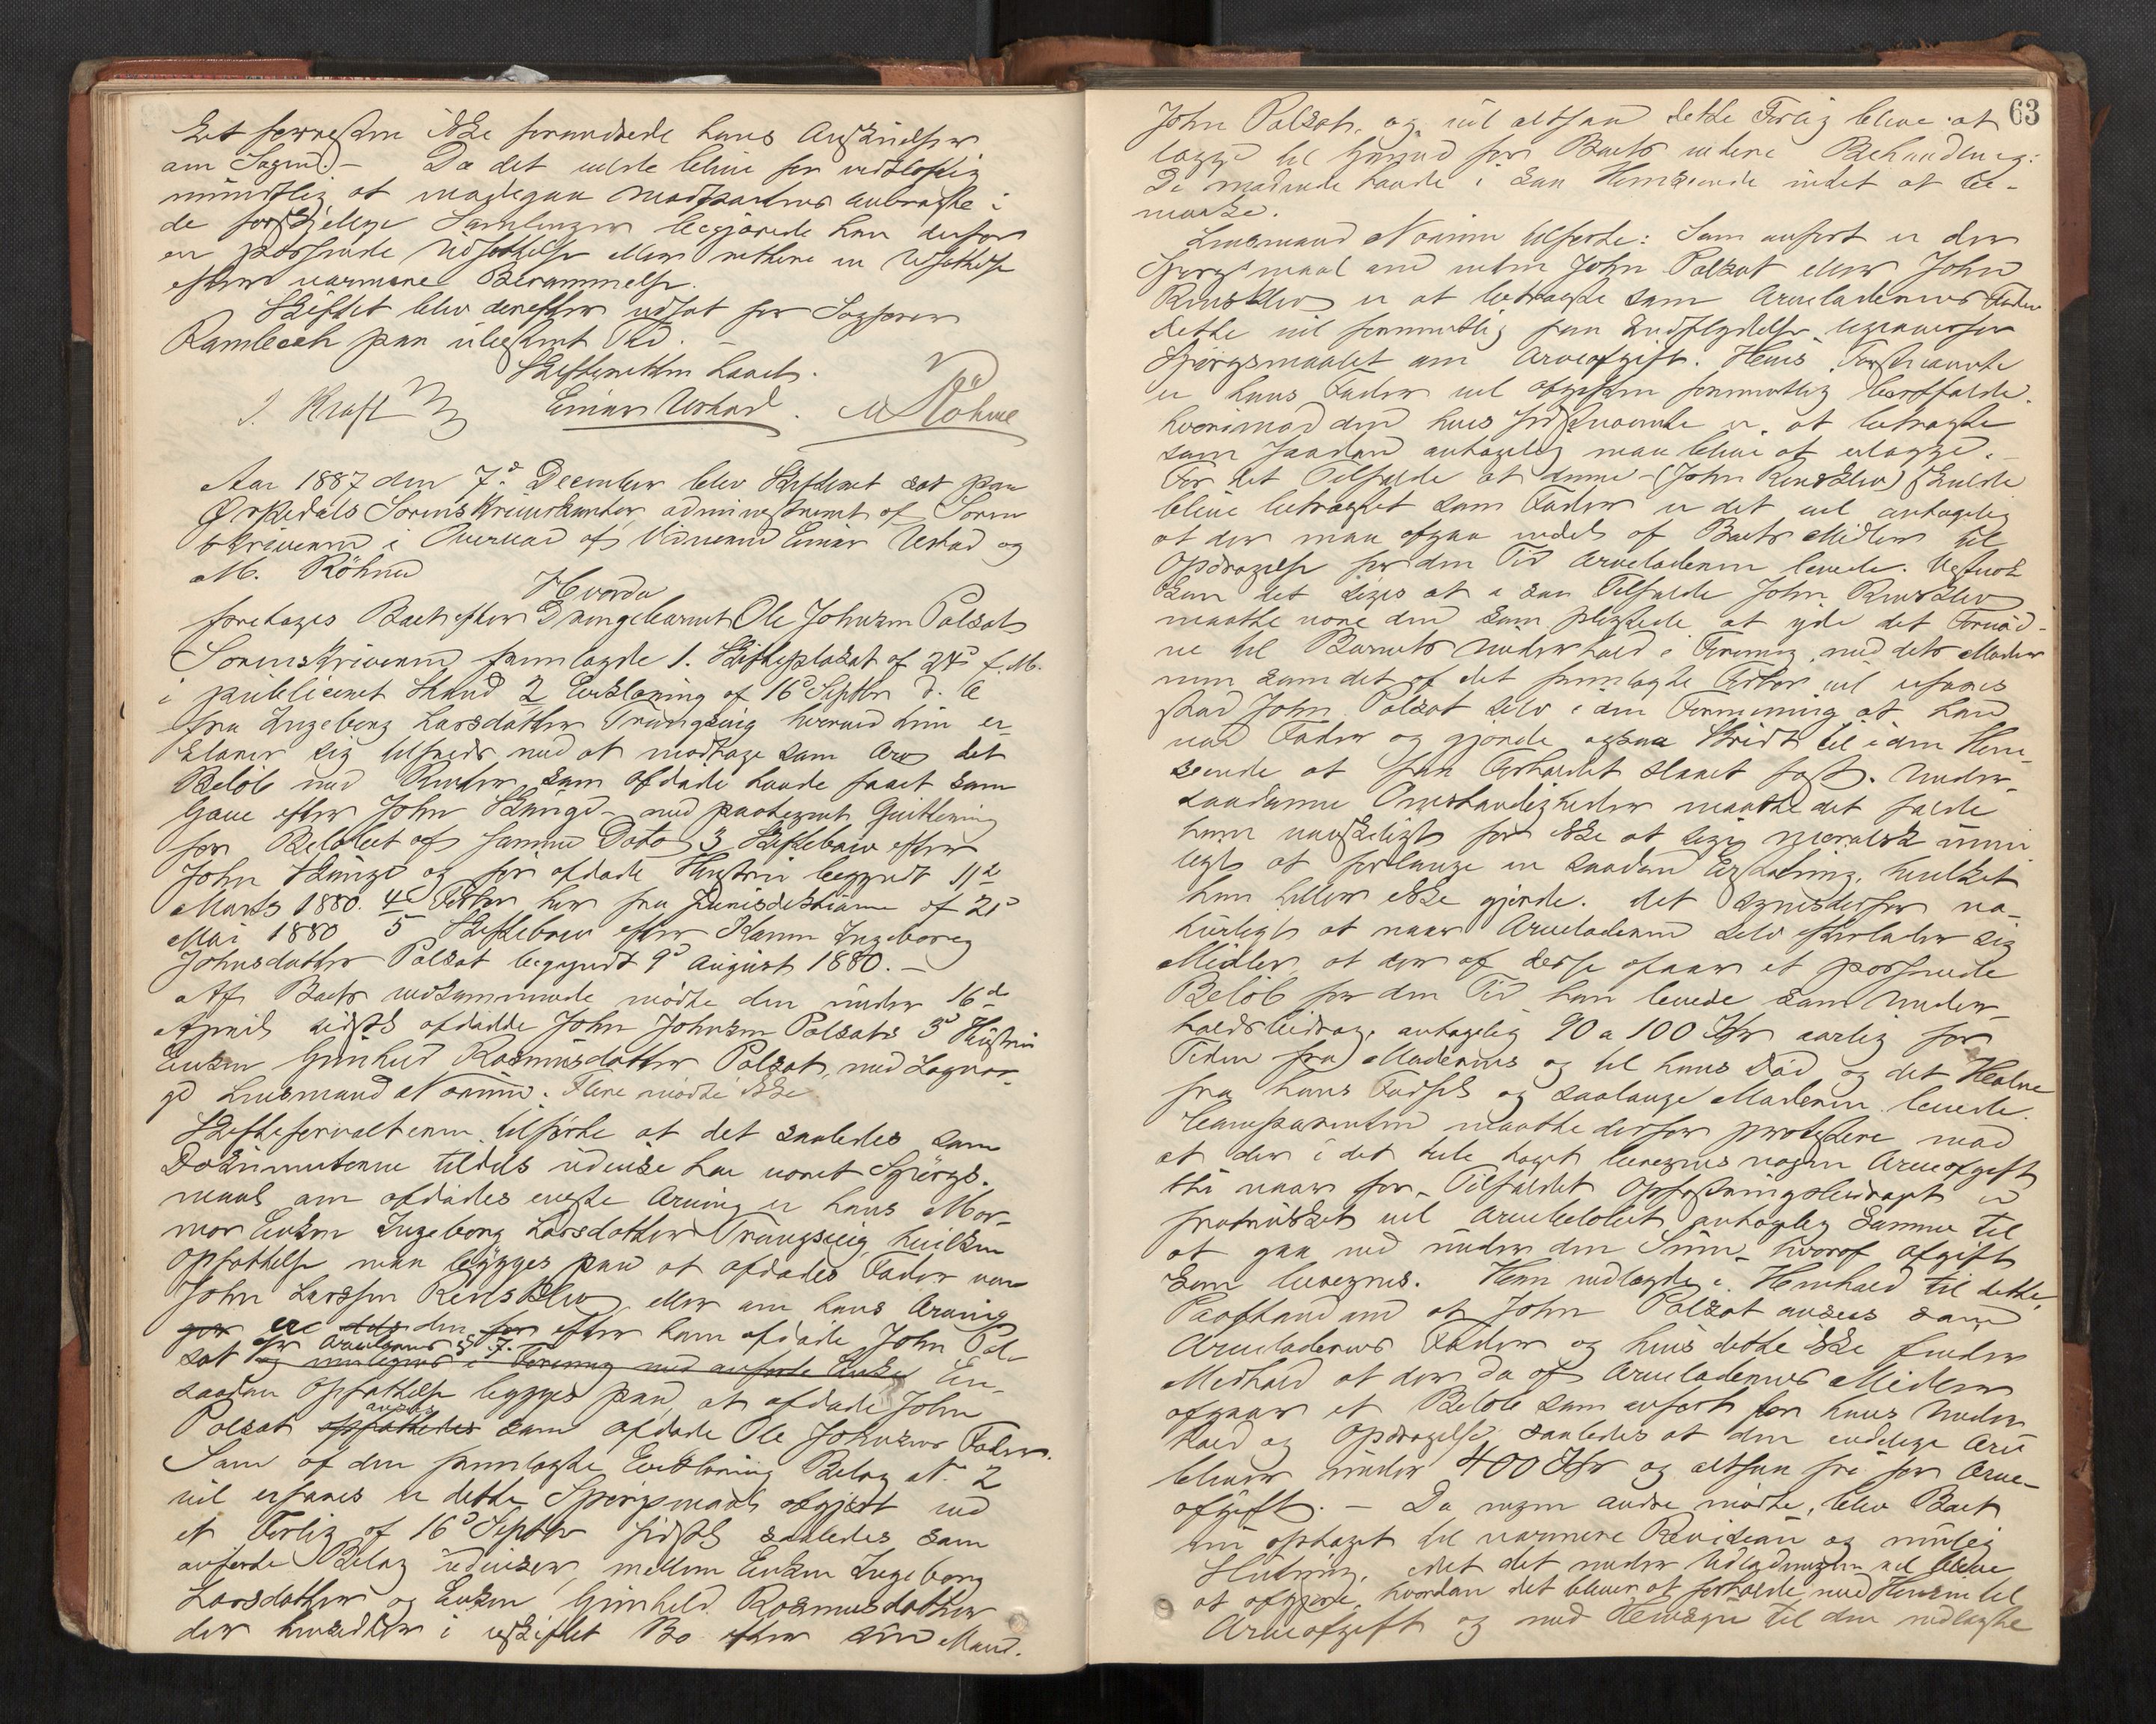 ikke forandrede hans Anskuelser
om Sagen. - Da det vilde blive for vidtløftig
mundtlig at modegaa Modpartens anbragte i
de forskjellige Samlinger begjærede han derfor
en passende Udsættelse eller rettere en Udsættelse
efter nærmere Berammelse.
Skiftet blev derefter udsat for Sagfører
Rambech paa ubestemt Tid. -
Skifteretten hævet.
J. Kraft Einar Ustad. M Röhme
Aar 1887 den 7de December blev Skifteret sat paa
Ørkedals Sorenskriverkontor, administreret af Soren
skriveren i Overvær af Vidnerne Einar Ustad og
M. Röhme
Hvorda
foretages Boet efter Drengebarnet Ole Johnsen Polsat
Sorenskriveren fremlagde 1. Skifteplakat af 24de f. M.
i publiceret Stand 2 Erklæring af 16de Septbr d. A
fra Ingeborg Larsdatter Trangsvig hvorved hun er-
klærer sig tilfreds med at modtage som Arv det
Beløb med Renter som Afdøde havde faaet som
Gave efter John Skinge med paategnet Quittering
for Beløbet af samme Dato 3 Skiftebrev efter
John Skinge og før afdøde Hustru begyndt 11te
Marts 1880. 4 Attest her fra Jurisdiktionen af 21de
Mai 1880 5 Skiftebrev efter Karen Ingeborg
Johnsdatter Polsat begyndt 9de August 1880. -
Af Boets vedkommende mødte den under 16de
April sidstl afdøde John Johnsen Polsats 3de Hustru
Enken Gunhild Rasmusdatter Polsat, med Lagvær-
ge Lensmand Narum. Flere mødte ikke
Skifteforvalteren tilførte at det saaledes som
Dokumenterne tildels udvise har været Spørgs-
maal om afdødes eneste Arving er hans Mor-
mor Enken Ingeborg Larsdatter Trangsvig, hvilken
Opfattelse maa bygges paa at afdødes Fader var
John Larssen Rensklev eller om hans Arving
er den efter ham afdøde John Pol-
sat efter Arvelovens § 7. En
saadan Opfattelse bygges paa at afdøde John
Polsat ansees som afdøde Ole Johnsens Fader.
Som af den fremlagte Erklæring Bilag No 2
vil erfares er dette Spørgsmaal afgjort ved
et Forlig af 16de Septbr sidstl saaledes som
anførte Bilag udviser, mellem Enken Ingeborg
Larsdatter og Enken Gunhild Rasmusdatter
der hensidder i uskiftet Bo efter sin Mand.
63
John Polsat, og vil altsaa dette Forlig blive at
lægge til Grund for Boets videre Behandling:
De mødende havde i saa Henseende intet at be-
mærke.
Lensmand Narum tilførte: Som anført er der
Spørgsmaal om enten John Polsat eller John
Rensklev er at betragte som Arveladerens Fader
dette vil formentlig faa Indflydelse ligeoverfor
Spørgsmaalet om Arveafgift. Hvis Førstnævnte
er hans Fader vil Afgiften formentlig bortfalde.
hvorimod den hvis sidstnævnte er at betragte
som saadan antagelig maa blive at erlægge. -
For det Tilfælde at denne - (John Rensklev) skulde
blive betragtet som Fader er det vel antagelig
at der maa afgaa endel af Boets Midler til
Opdragelse for den Tid Arveladeren levede. Vistnok
kan det siges at i saa Tilfælde John Rensklev
maatte være den som pligtede at yde det Fornød-
ne til Barnets Underhold i Forening med dets Moder
men som det af det fremlagte Attest vil erfares
stod John Polsat selv i den Formening at han
var Fader og gjorde ogsaa Skridt til i den Hen-
seende at faa Forholdet slaaet fast. Under
saadanne Omstændigheder maatte det falde
ham vanskeligt for ikke at sige moralsk umu
ligt at forlange en saadan Erstatning, hvilket
han heller ikke gjorde. Det synes derfor na-
turligt at naar Arveladeren selv efterlader sig
Midler, at der af disse afgaar et passende
Beløb for den Tid han levede som Under-
holdsbidrag, antagelig 90 a 100 Kr aarlig for
Tiden fra Moderens og til hans Død og det Halve
fra hans Fødsel og saalænge Moderen levede.
Comparenten maatte derfor protestere mod
at der i det hele taget beregnes nogen Arveafgift
thi naar for Tilfældet Opfostringsbidraget er
fratrukket vil Arvebeløbet antagelig komme til
at gaa ned under den Sum hvoraf Afgift
kan beregnes. Han nedlagde i Henhold til dette
Paastand om at John Polsat ansees som
Arveladerens Fader og hvis dette ikke finder
Medhold at der da af Arveladerens Midler
afgaar et Beløb som anført for hans Under
hold og Opdragelse saaledes at den endelige Arv
bliver under 400 Kr og altsaa fri for Arve-
afgift. - Da ingen andre mødte, blev Boet
nu optaget til nærmere Revision og mulig
Slutning, idet det under Udlodningen vil blive
at afgjøre, hvordan det bliver at forholde med Hensyn til
Arveafgift og med Hensyn til den nedlagte